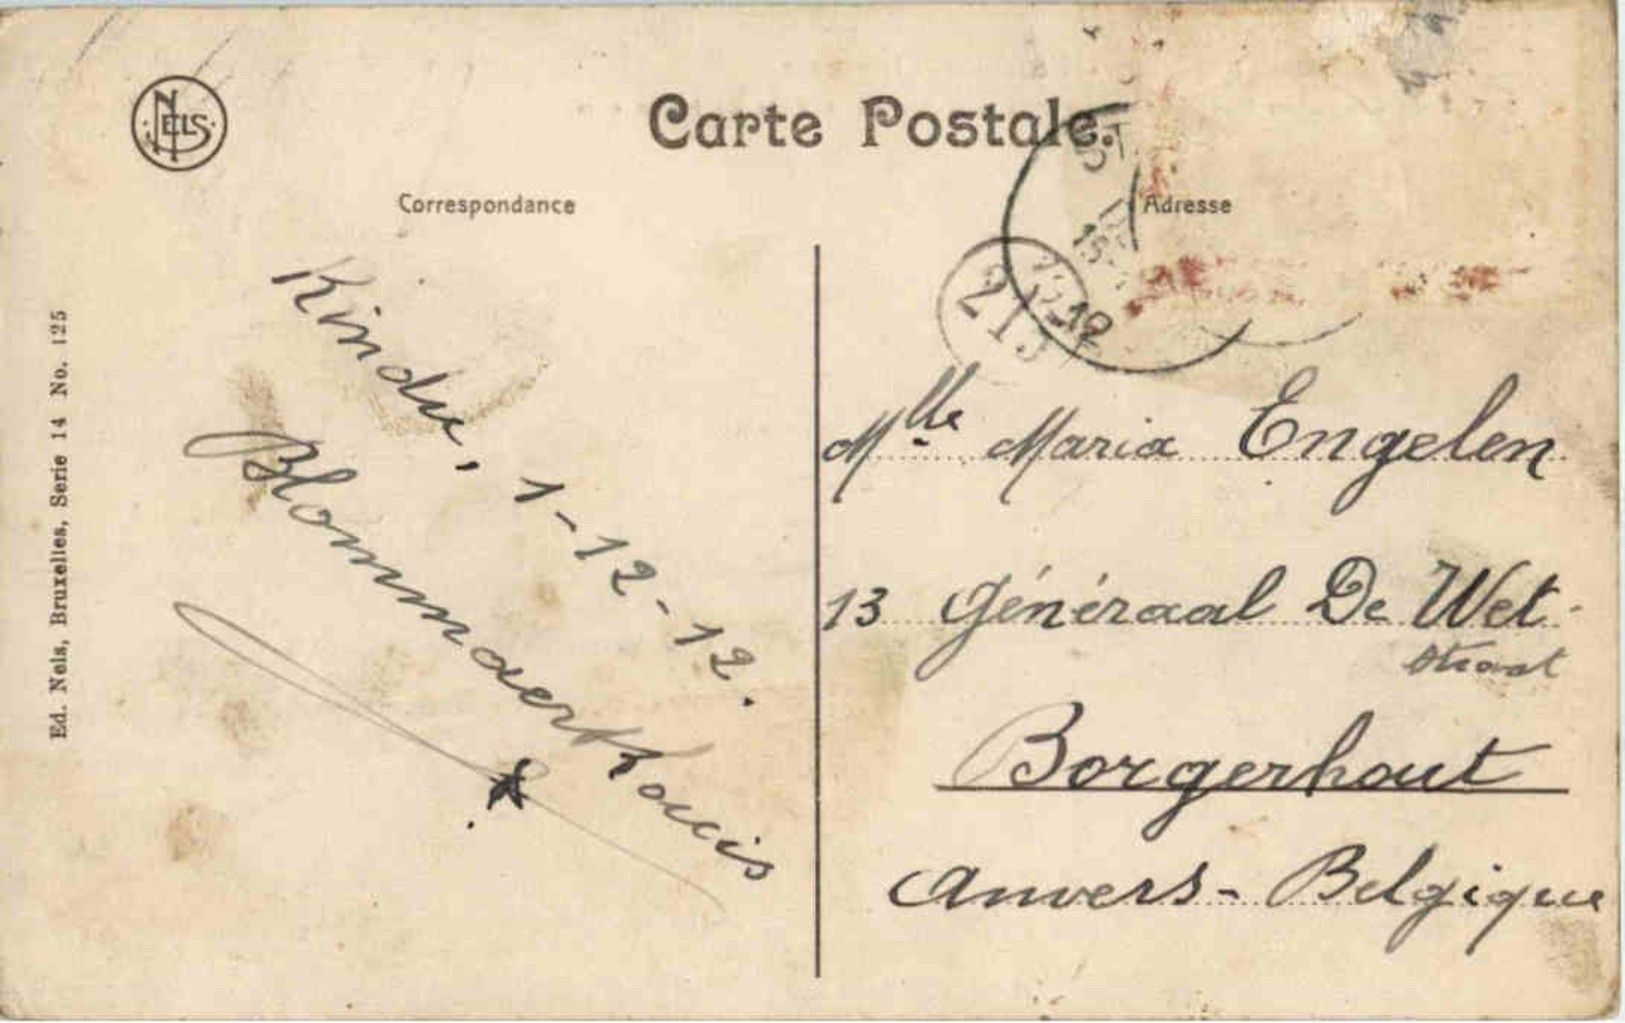 NELS
Carte Postale.
Correspondance
Adresse
Ed. Nels, Bruxelles, Serie 14 No. 125
Kindu, 1-12-12.
Blommaert Louis
213
12
Mlle Maria Engelen
13 Généraal De Wet-
straat
Borgerhout
Anvers - Belgique